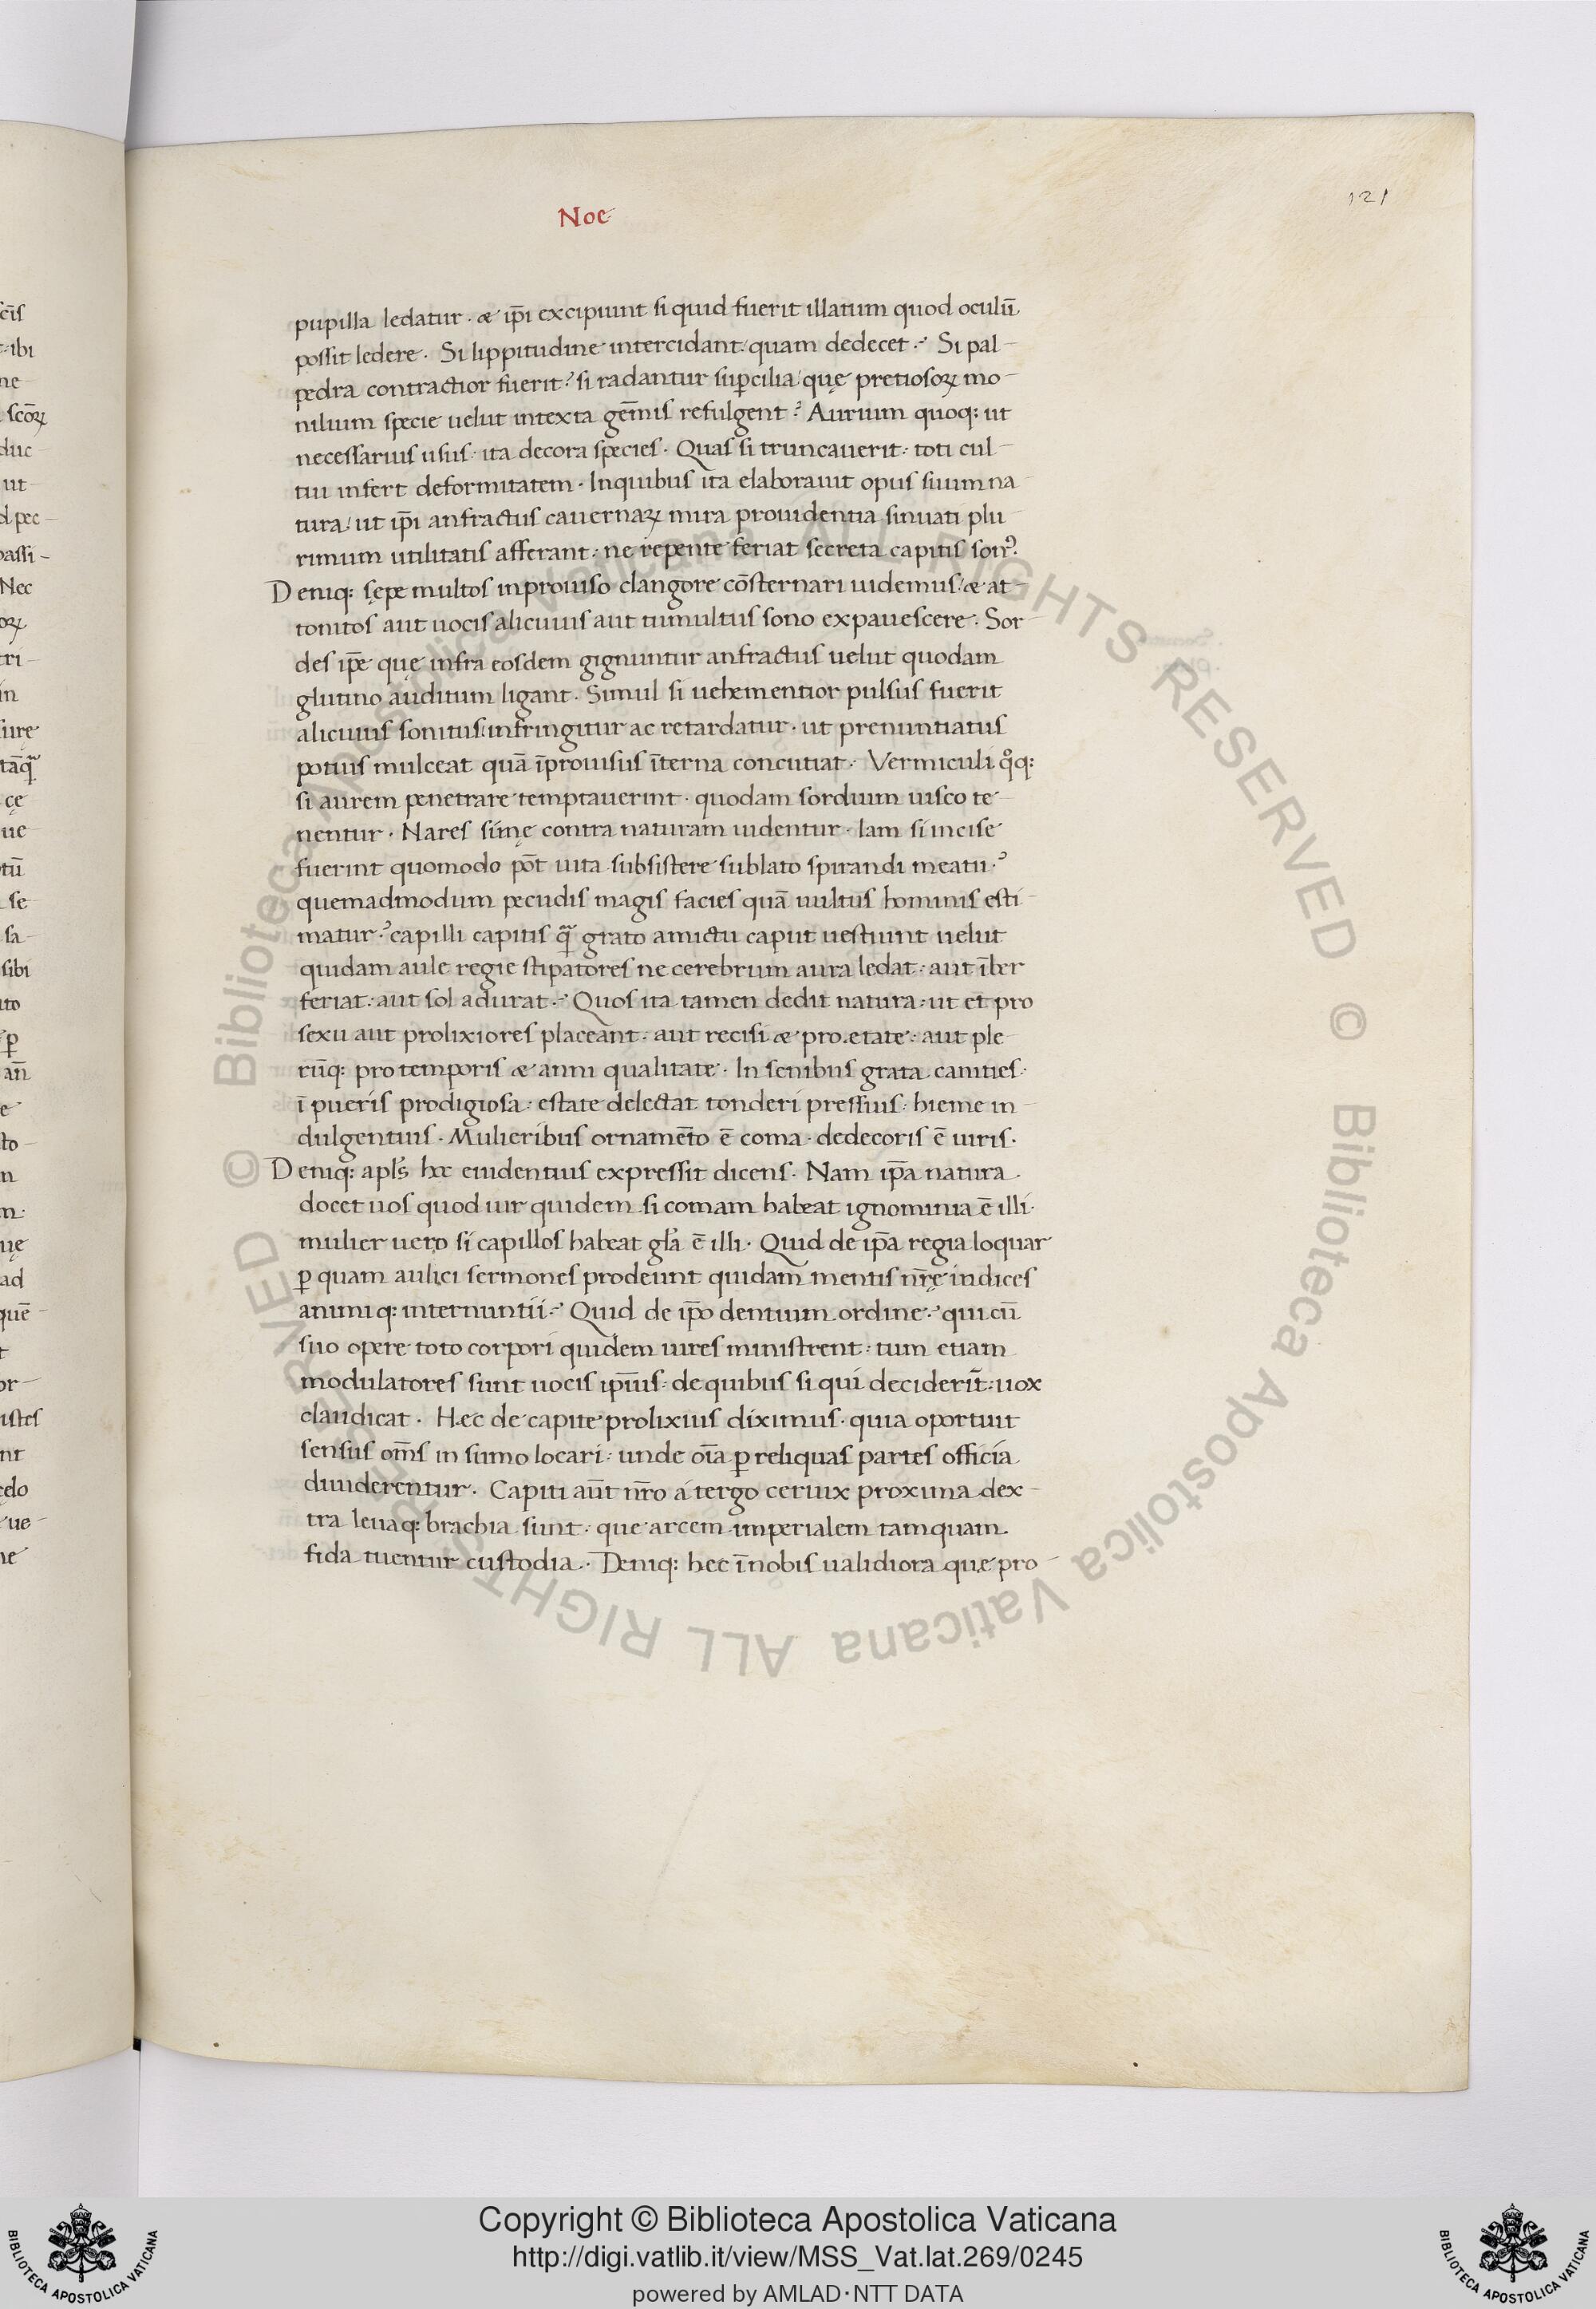 Noe
121
pupilla ledatur · & ip̄i excipiunt si quid fuerit illatum quod oculū
possit ledere · Si lippitudine intercidant: quam dedecet · Si pal-
pedra contractior fuerit? si radantur sup̱cilia que̜ pretiosoꝝ mo-
nilium specie uelut intexta gem̄is refulgent? Aurium quoq: ut
necessarius usus · ita decora species · Quas si truncauerit: toti cul-
tui infert deformitatem · Inquibus ita elaborauit opus suum na
tura: ut ip̄i anfractus cauernaꝝ mira prouidentia sinuati plu
rimum utilitatis afferant: ne repente feriat secreta capitis son᷒?
Deniq: se̜pe multos inprouiso clangore cōsternari uidemus: & at-
tonitos aut uocis alicuius aut tumultus sono expauescere · Sor
des ip̄e que̜ infra eosdem gignuntur anfractus uelut quodam
glutino auditum ligant · Simul si uehementior pulsus fuerit
alicuius sonitus: infringitur ac retardatur · ut prenuntiatus
potius mulceat quā īprouisus īterna concutiat · Vermiculi qͦq:
si aurem penetrare temptauerint · quodam sordium uisco te-
nentur · Nares sime̜ contra naturam uidentur · Iam si incise
fuerint quomodo pōt uita subsistere sublato spirandi meatu?
quemadmodum pecudis magis facies quā uultus hominis esti-
matur? capilli capitis q̄ᷓ grato amictu caput uestiunt uelut
quidam aule regie stipatores ne cerebrum aura ledat: aut īber
feriat: aut sol adurat · Quos ita tamen dedit natura: ut et pro
sexu aut prolixiores placeant · aut recisi & pro etate: aut ple-
rūq: pro temporis & anni qualitate · In senibus grata canities ·
ī pueris prodigiosa: estate delectat tonderi pressius: hieme in-
dulgentius · Mulieribus ornamēto ē coma · dedecoris ē uiris ·
Deniq: apl's hoc euidentius expressit dicens · Nam ip̄a natura
docet uos quod uir quidem si comam habeat ignominia ē illi·
mulier uero si capillos habeat gl'a ē illi · Quid de ip̄a regia loquar
ꝑ quam aulici sermones prodeunt quidam mentis nr̄e̜ indices
animiq: internuntii · Quid de ip̄o dentium ordine · qui cū
suo opere toto corpori quidem uires ministrent: tum etiam
modulatores sunt uocis ip̄ius: de quibus si qui deciderīt: uox
claudicat · Hec de capite prolixius diximus · quia oportuit
sensus om̄s in sumo locari: unde oīa ꝑ reliquas partes officia
diuiderentur · Capiti aūt nr̄o á tergo ceruix proxima dex-
tra leuaq: brachia sunt · que arcem imperialem tamquam
fida tuentur custodia · Deniq: hec ī nobis ualidiora que pro-
Copyright © Biblioteca Apostolica Vaticana
http://digi.vatlib.it/view/MSS_Vat.lat.269/0245
powered by AMLAD·NTT DATA
BIBLIOTECA APOSTOLICA VATICANA
BIBLIOTECA APOSTOLICA VATICANA
© Biblioteca Apostolica Vaticana ALL RIGHTS RESERVED © Biblioteca Apostolica Vaticana ALL RIGHTS RESERVED